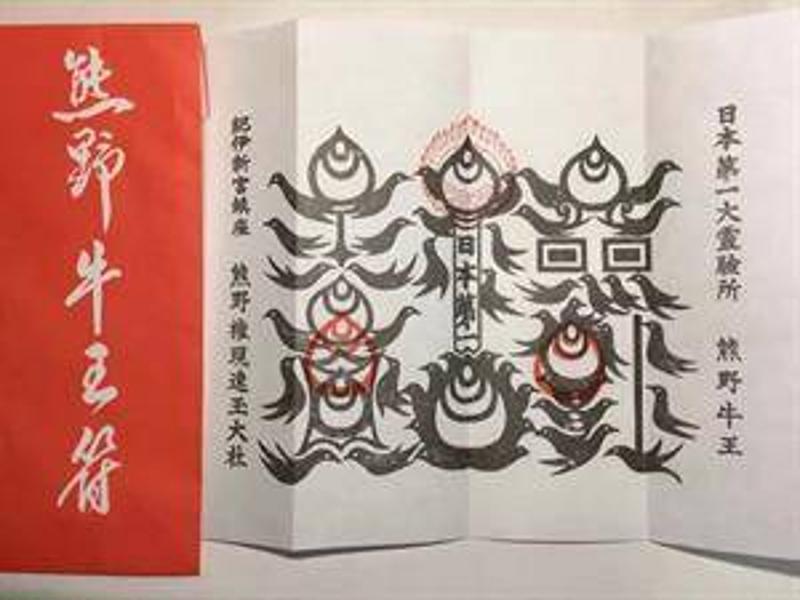 熊野牛王符
日本第一大霊験所 熊野牛王
日本第一
紀伊新宮鎮座 熊野権現速玉大社